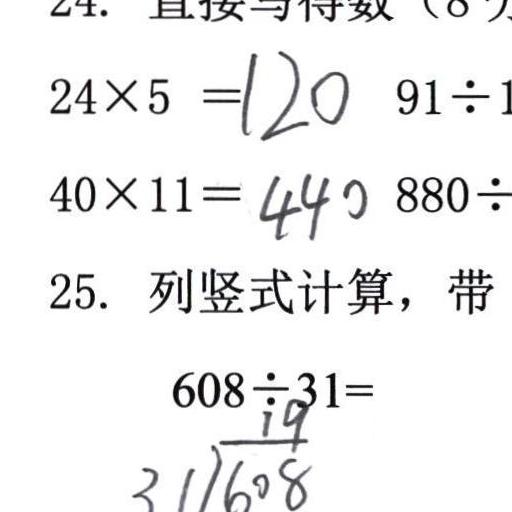 24. 直接写得数（8分
24×5 =120 91÷1
40×11=440 880÷
25. 列竖式计算，带
608÷31=
19
31)608